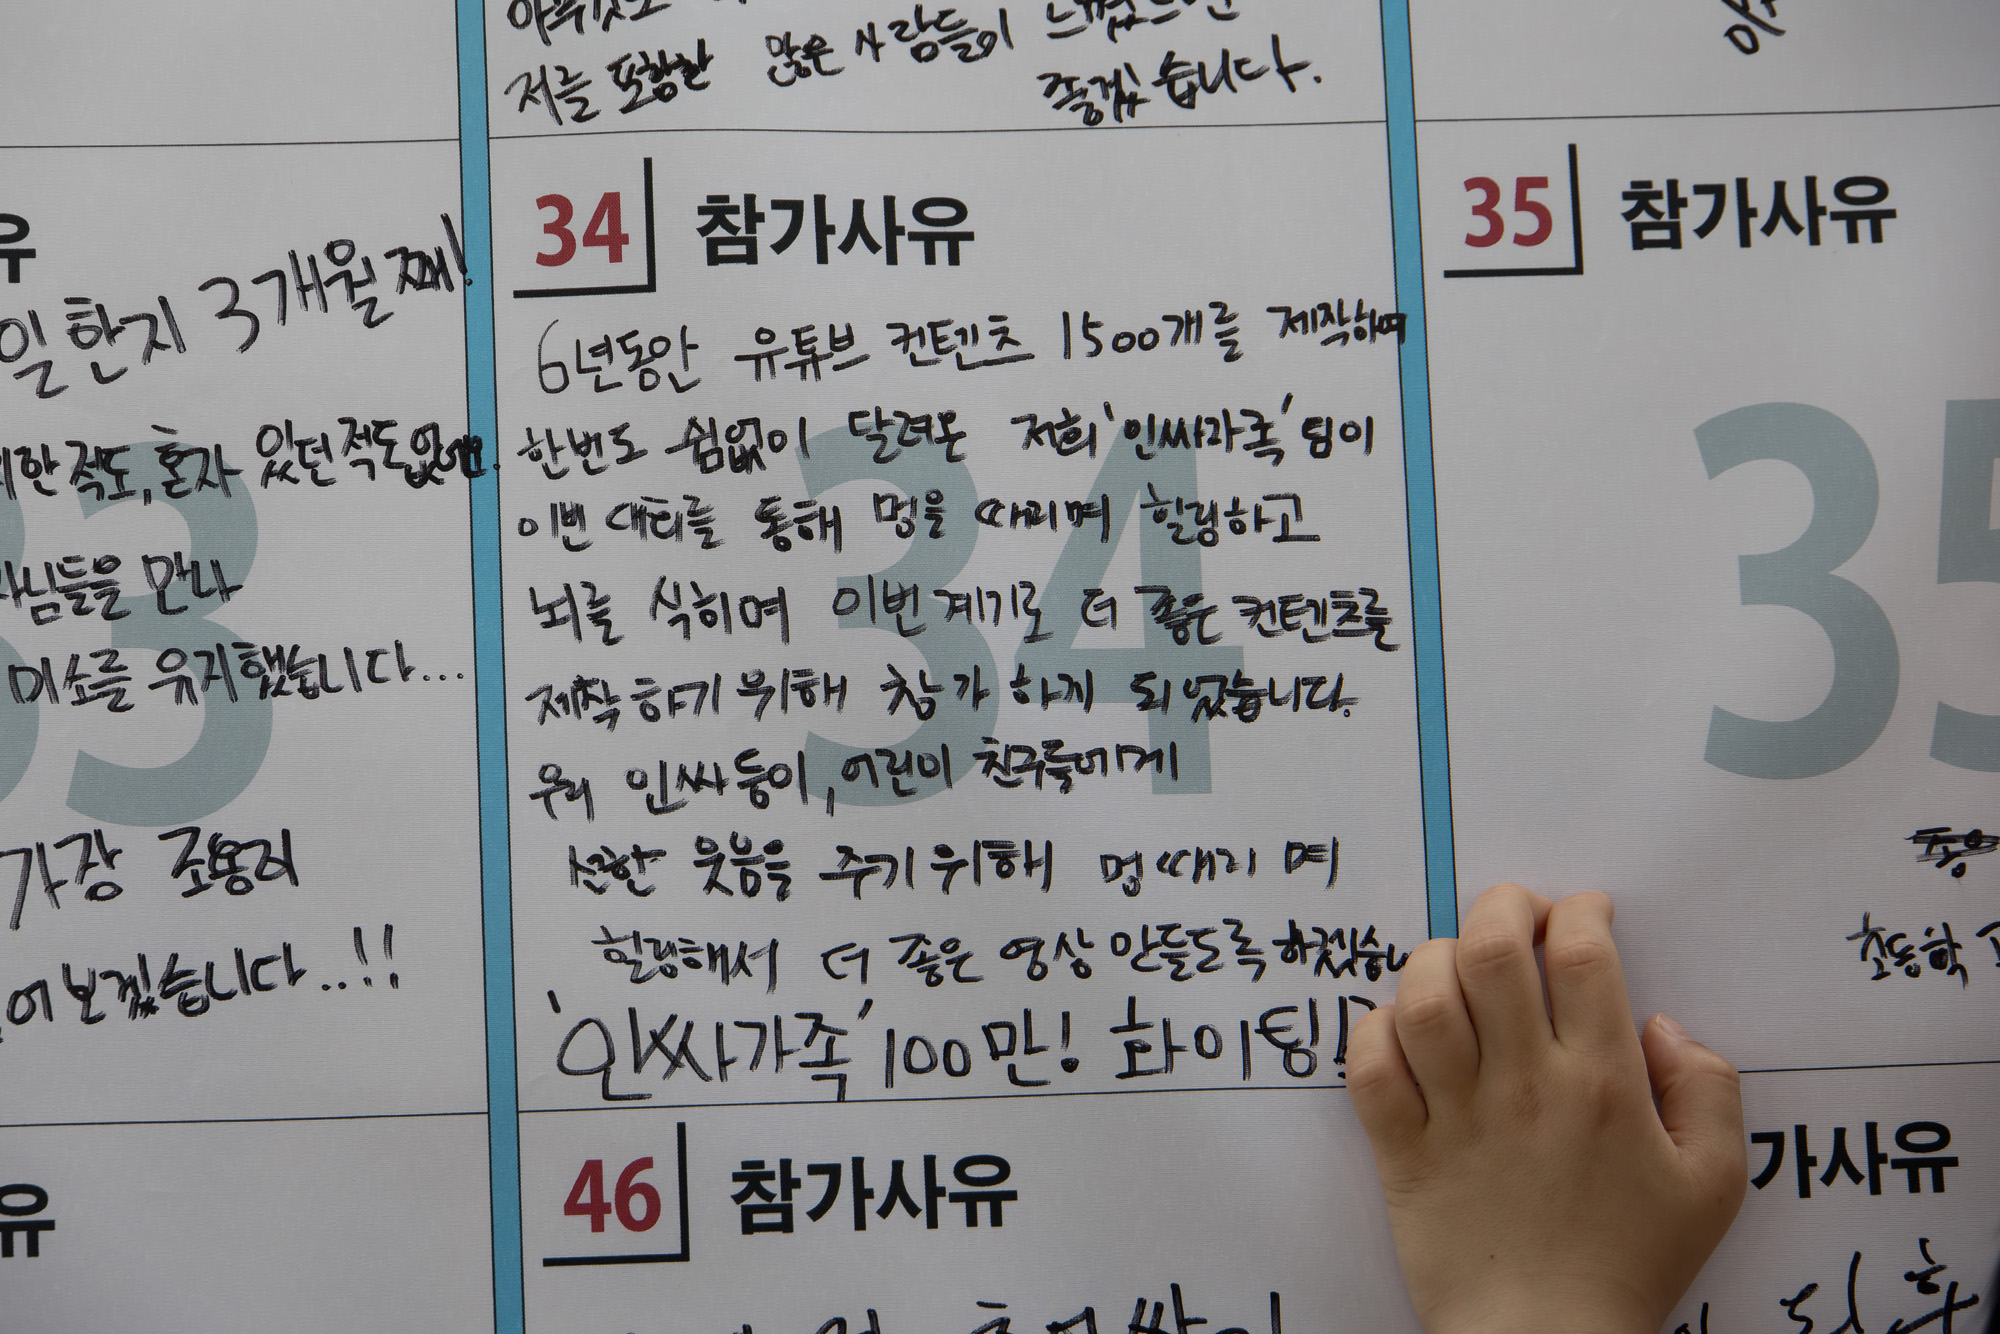 저를 포함한 많은 사람들이 느꼈으면
좋겠습니다.
유
일한지 3개월 째!
한 적도, 혼자 있던 적도 없
님들을 만나
미소를 유지했습니다...
가장 조용히
어 보겠습니다..!!
34 참가사유
6년동안 유튜브 컨텐츠 1500개를 제작하며
한번도 쉼없이 달려온 저희 '인싸가족' 팀이
이번 대회를 통해 멍을 때리며 힐링하고
뇌를 식히며 이번 계기로 더 좋은 컨텐츠를
제작하기 위해 참가 하게 되었습니다.
우리 인싸둥이, 어린이 친구들에게
선한 웃음을 주기위해 멍때리며
힐링해서 더 좋은 영상 만들도록 하겠습니
'인싸가족' 100만! 화이팅!
34
35 참가사유
35
초등학
46 참가사유
유
가사유